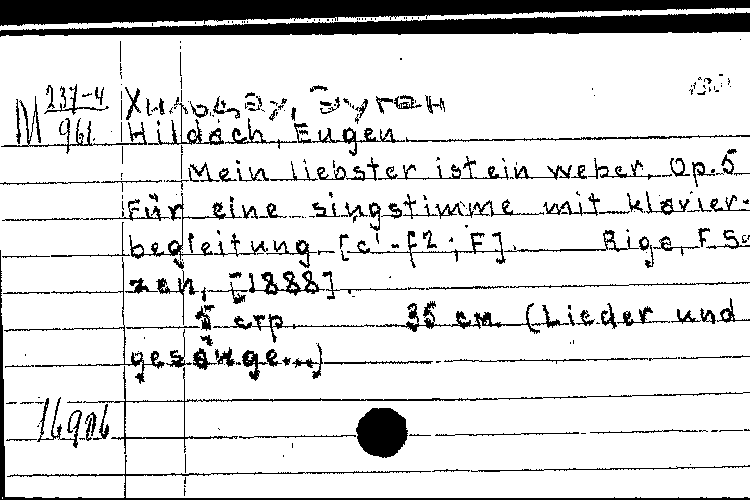 М 237-4
961
Hildach, Eugen.
Mein liebster ist ein weber. Op.5
Für eine singstimme mit klavier-
begleitung. [c¹-f2; F]. Riga, P.
[1888].
5 стр. 35 cm. (Lieder und
gesänge...)
16906